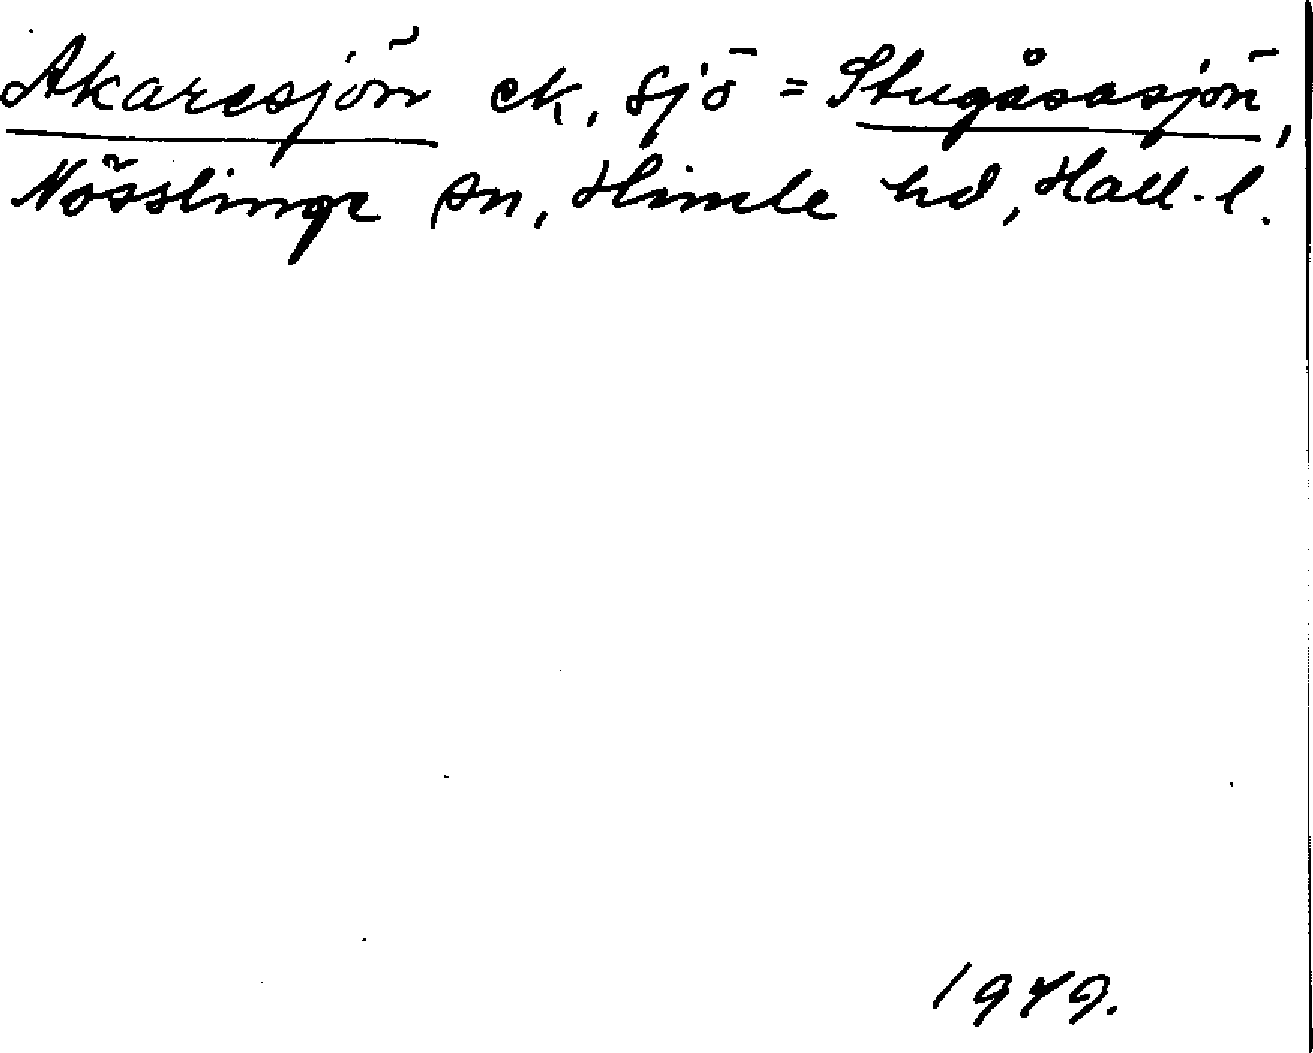 Akaresjön ek, sjö = Stugåsasjön,
Nösslinge sn, Himle hd, Hall. l.
1949.